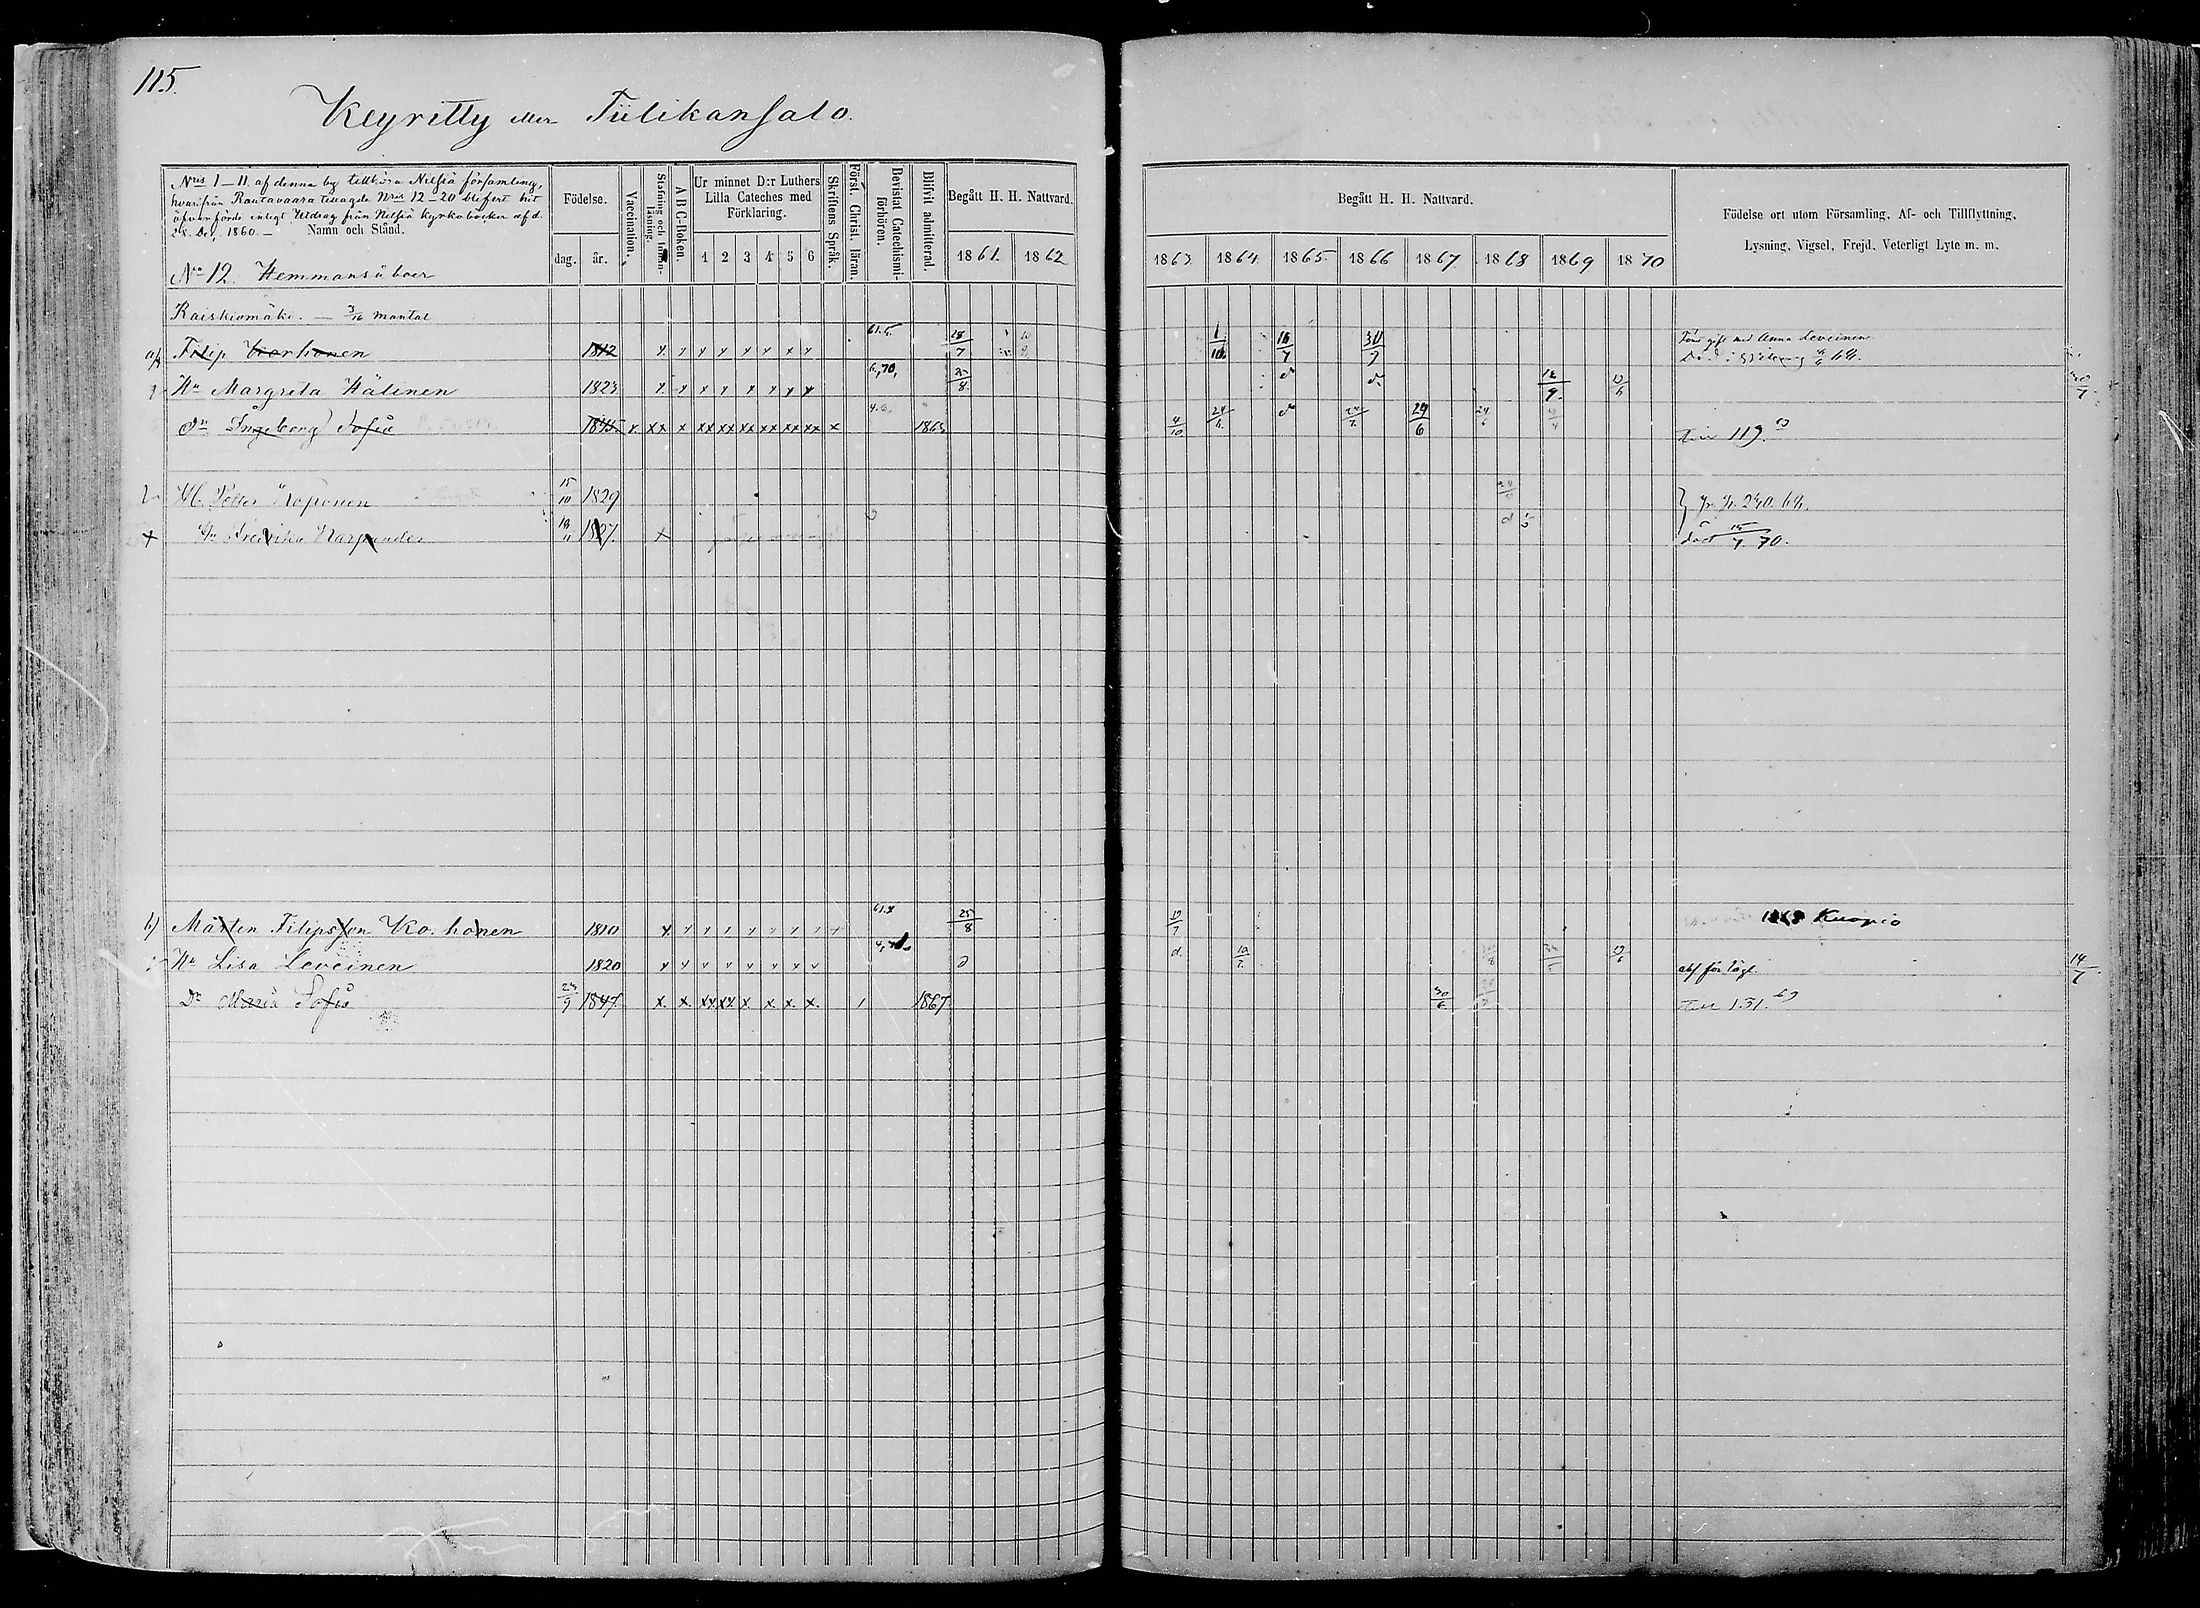 115.
Keyritty eller Tiilikansalo.
N:ris 1–11 af denna by tillhöra Nilsiä församling,
hvarifrån Rautavaara tillagde N:ris 12–20 blifvit hit
öfverförde enligt Utdrag från Nilsiä kyrkoböcker af d.
28. Dec. 1860. –
Namn och Stånd.
Födelse.
dag. år.
Vaccination.
Stafning och Innanläsning.
A B C-Boken.
Ur minnet D:r Luthers Lilla Cateches med Förklaring.
1 2 3 4 5 6
Skriftens Språk.
Först. Christ. läran.
Bevistat Catechismiförhören.
Blifvit admitterad.
Begått H. H. Nattvard.
1861. 1862
Begått H. H. Nattvard.
1863 1864 1865 1866 1867 1868 1869 1870
Födelse ort utom Församling, Af- och Tillflyttning,
Lysning, Vigsel, Frejd, Veterligt Lyte m. m.
No 12. Hemmansåboer
Raiskiomäki. – 3/16 mantal
a) Filip Korhonen 1812 x x x x x x x x 61.5. 28/7 1/10 16/7 30/7 Förr gift med Anna Leveinen
Hu Margreta Hälinen 1823 x x x x x x x x 6,70, 25/8 d d 12/9. 12/6
Dr Ingeborg Sofia 1845 x. xx x xx xx xx xx xx xx x 1863 4/10 24/6. d 24/7. 29/6 till 119.
M. Petter Koponen 15/10 1829 fr. p. 240. 64.
Hu Fredrika Karpander 18/11 1827. x död 15/4. 70.
b) Mårten Filipsson Korhonen 1810 x x x x x x x x x 61.4 25/8 12/7 1868 Kuopio
Hu Lisa Leveinen 1820 x x x x x x x x d d. 10/7. 12/6 14/7
Dr Maria Sofia 23/9 1847. x. x. xx xx x x x. x. 1 1867 30/6. till 131. 69